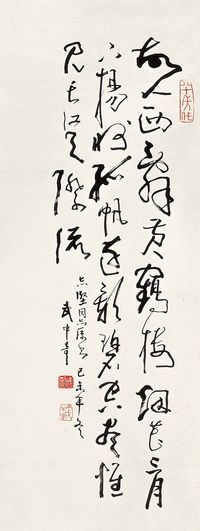 故人西辭黃鶴樓烟花三月
下揚州孤帆遠影碧空盡惟
見長江天際流
志堅同志属書 己未年冬
武中奇